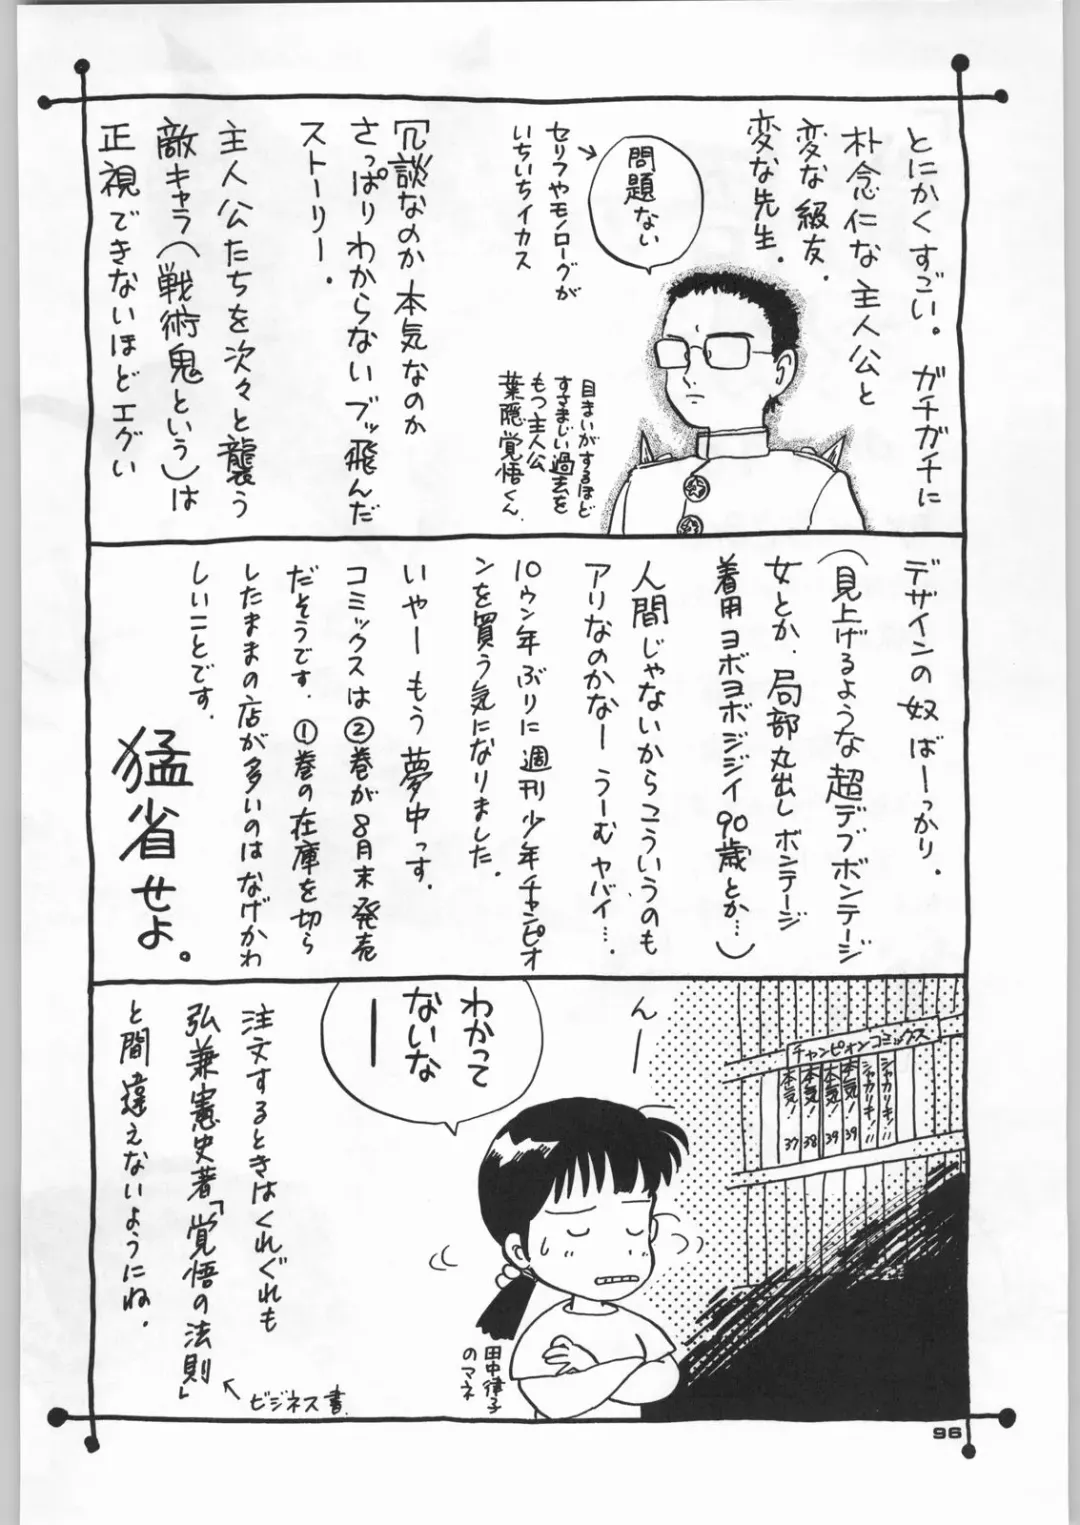 とにかくすごい。ガチガチに
朴念仁な主人公と
変な級友.
変な先生.
問題ない
セリフやモノローグが
いちいちイカス
目まいがするほど
すさまじい過去を
もつ主人公
葉隠覚悟くん.
冗談なのか本気なのか
さっぱりわからないブッ飛んだ
ストーリー.
主人公たちを次々と襲う
敵キャラ(戦術鬼という)は
正視できないほどエグい
デザインの奴ばーっかり.
(見上げるような超デブボンテージ
女とか、局部丸出しボンテージ
着用ヨボヨボジジイ90歳とか…)
人間じゃないからこういうのも
アリなのかなーうーむヤバイ….
10ウン年ぶりに週刊少年チャンピオ
ンを買う気になりました.
いやーもう夢中っす.
コミックスは②巻が8月末発売
だそうです.①巻の在庫を切ら
したままの店が多いのはなげかわ
しいことです.
猛省せよ。
チャンピオンコミックス
シャカリキ!11
シャカリキ!11
本気!39
本気!39
本気!38
本気!37
んー
わかって
ないなー
田中律子
のマネ
注文するときはくれぐれも
弘兼憲史著「覚悟の法則」
ビジネス書.
と間違えないようにね.
96